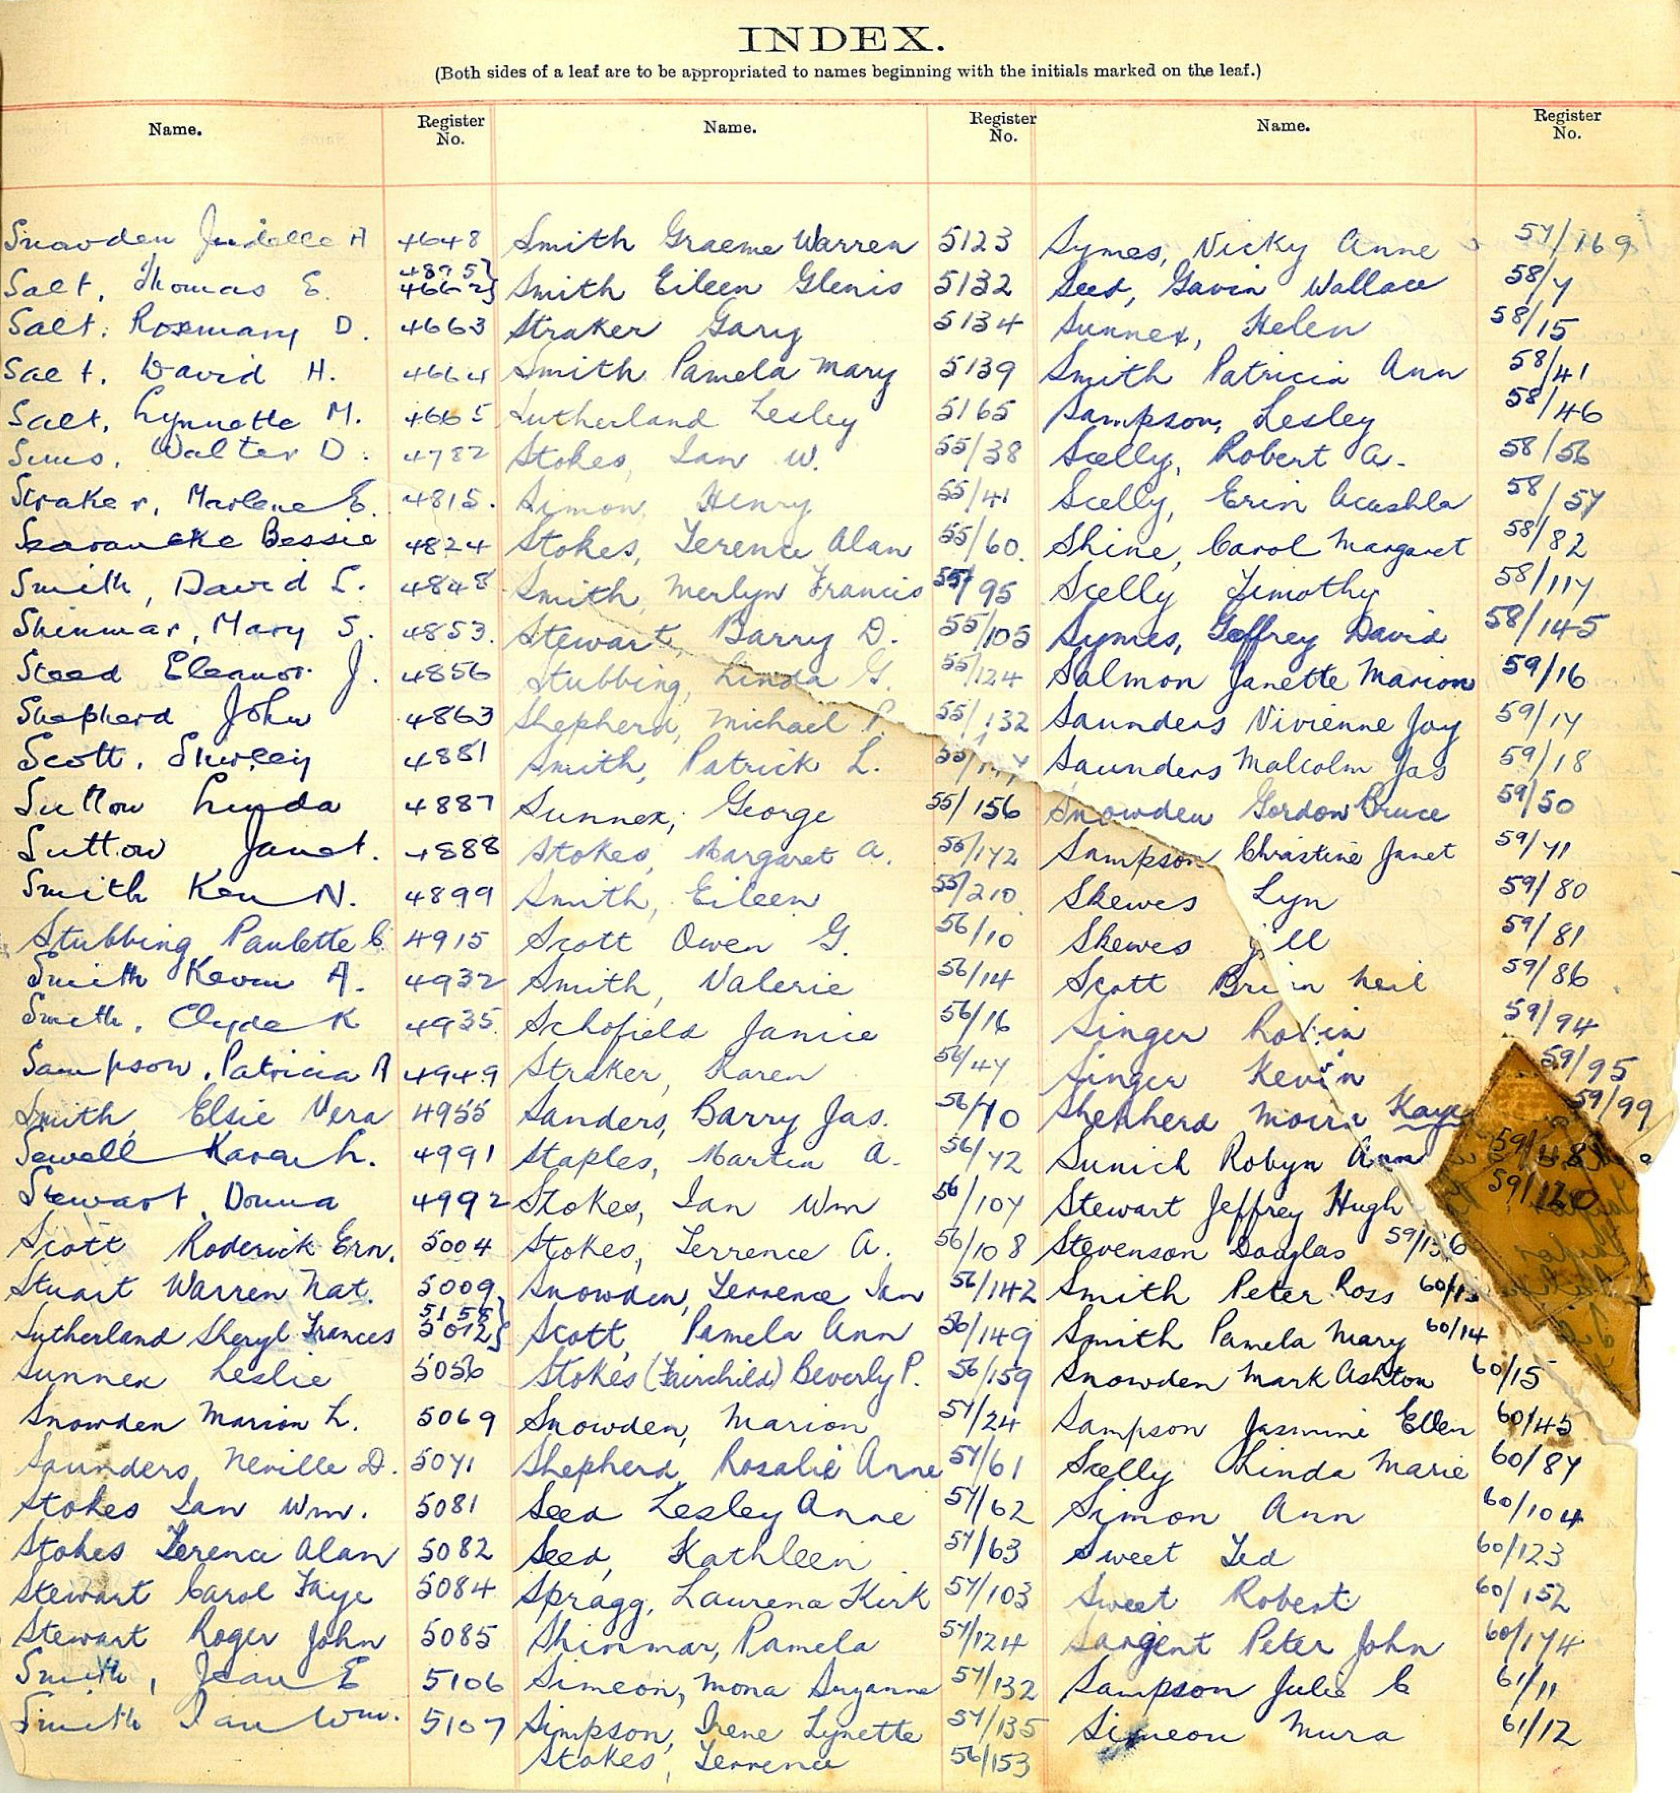 INDEX.
(Both sides of a leaf are to be appropriated to names beginning with the initials marked on the leaf.)
Name. Register No. Name. Register No. Name. Register No.
Snowden Judelle A 4648
Salt, Thomas E. 4895 4662
Salt, Rosemary D. 4663
Salt, David H. 4664
Salt, Lynnette M. 4665
Sims, Walter D. 4782
Straker, Marlene E. 4815.
Bessie 4824
Smith, David L. 4848
Shinmar, Mary S. 4853.
Steed Eleanor J. 4856
Shepherd John 4863
Scott, Shirley 4881
Sutton Lynda 4887
Sutton Janet. 4888
Smith Ken N. 4899
Stubbing Paulette C 4915
Smith Kevin A. 4932
Smith, Clyde K 4935.
Sampson, Patricia A 4949
Smith, Elsie Vera 4955
Sewell Karen L. 4991
Stewart, Donna 4992
Scott Roderick Ern. 5004
Stuart Warren Nat. 5009
Sutherland Sheryl Frances 5158 5012
Sunnex Leslie 5056
Snowden Marion L. 5069
Saunders, Neville D. 5071
Stokes Ian Wm. 5081
Stokes Terence Alan 5082
Stewart Carol Faye 5084
Stewart Roger John 5085
Smith, Jean E 5106
Smith Ian Wm. 5107
Smith Graeme Warren 5123
Smith Eileen Glenis 5132
Straker Gary 5134
Smith Pamela Mary 5139
Sutherland Lesley 5165
Stokes, Ian W. 55/38
Simon, Henry 55/41
Stokes, Terence Alan 55/60.
Smith, Merlyn Francis 55/95
Stewart, Barry D. 55/105
Stubbing, Linda G. 55/124
Shepherd, Michael P. 55/132
Smith, Patrick L.
Sunnex, George 55/156
Stokes, Margaret A. 55/172
Smith, Eileen 55/210
Scott Owen G. 56/10
Smith, Valerie 56/14
Schofield Janice 56/16
Straker, Karen 56/47
Sanders, Barry Jas. 56/70
Staples, Martin A. 56/72
Stokes, Ian Wm 56/107
Stokes, Terrence A. 56/108
Snowden, Terrence Ian 56/142
Scott, Pamela Ann 56/149
Stokes (Fairchild) Beverly P. 56/159
Snowden, Marion 57/24
Shepherd, Rosalie Anne 57/61
Seed Lesley Anne 57/62
Seed, Kathleen 57/63
Spragg, Laurena Kirk 57/103
Shinmar, Pamela 57/124
Simeon, Mona Suzanne 57/132
Simpson, Irene Lynette 57/135
Stokes, Terrence 56/153
Symes, Vicky Anne 57/169
Seed, Gavin Wallace 58/7
Sunnex, Helen 58/15
Smith Patricia Ann 58/41
Sampson, Lesley 58/46
Scelly, Robert A. 58/56
Scelly, Erin Acushla 58/57
Shine, Carol Margaret 58/82
Scelly Timothy 58/117
Symes, Geoffrey David 58/145
Salmon Janette Marion 59/16
Saunders Vivienne Joy 59/17
Saunders Malcolm Jas 59/18
Snowden Gordon Bruce 59/50
Sampson Christine Janet 59/71
Skewes Lyn 59/80
Skewes Jill 59/81
Scott Brian Neil 59/86
Singer Robin 59/94
Singer Kevin 59/95
Shepherd Moira Kaye 59/99
Sunich Robyn Ann
Stewart Jeffrey Hugh 59/120
Stevenson Douglas 59/156
Smith Peter Ross 60/13
Smith Pamela Mary 60/14
Snowden Mark Ashton 60/15
Sampson Jasmine Ellen 60/45
Scelly Linda Marie 60/87
Simon Ann 60/104
Sweet Ted 60/123
Sweet Robert 60/152
Sargent Peter John 60/174
Sampson Julie C 61/11
Simeon Mura 61/12